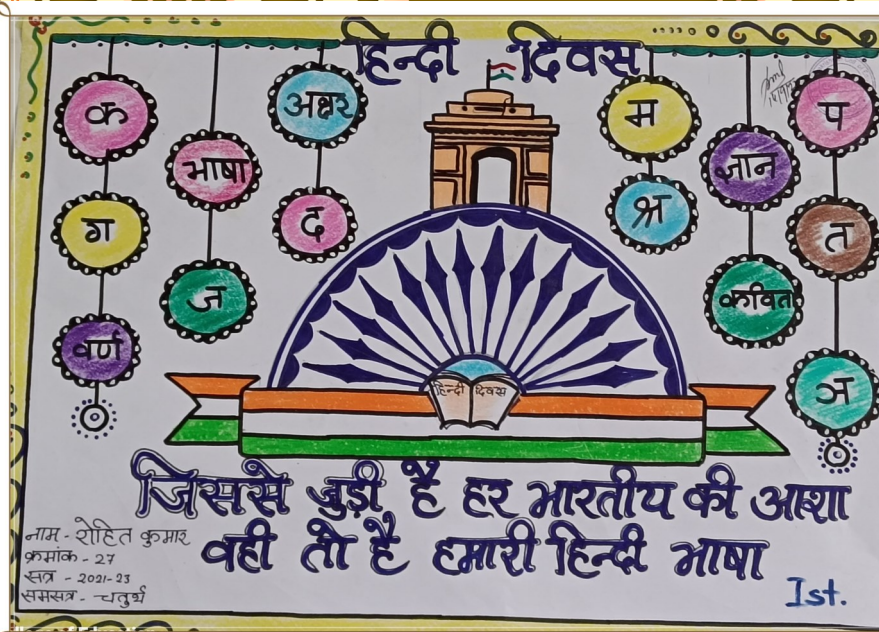 हिन्दी दिवस
क
ग
वर्ण
भाषा
ज
अक्षर
द
म
श्र
ज्ञान
कवित
प
त
ञ
हिन्दी दिवस
जिससे जुड़ी है हर भारतीय की आशा
वही तो है हमारी हिन्दी भाषा
नाम - रोहित कुमार
क्रमांक - 27
सत्र - 2021-23
समसत्र - चतुर्थ
Ist.